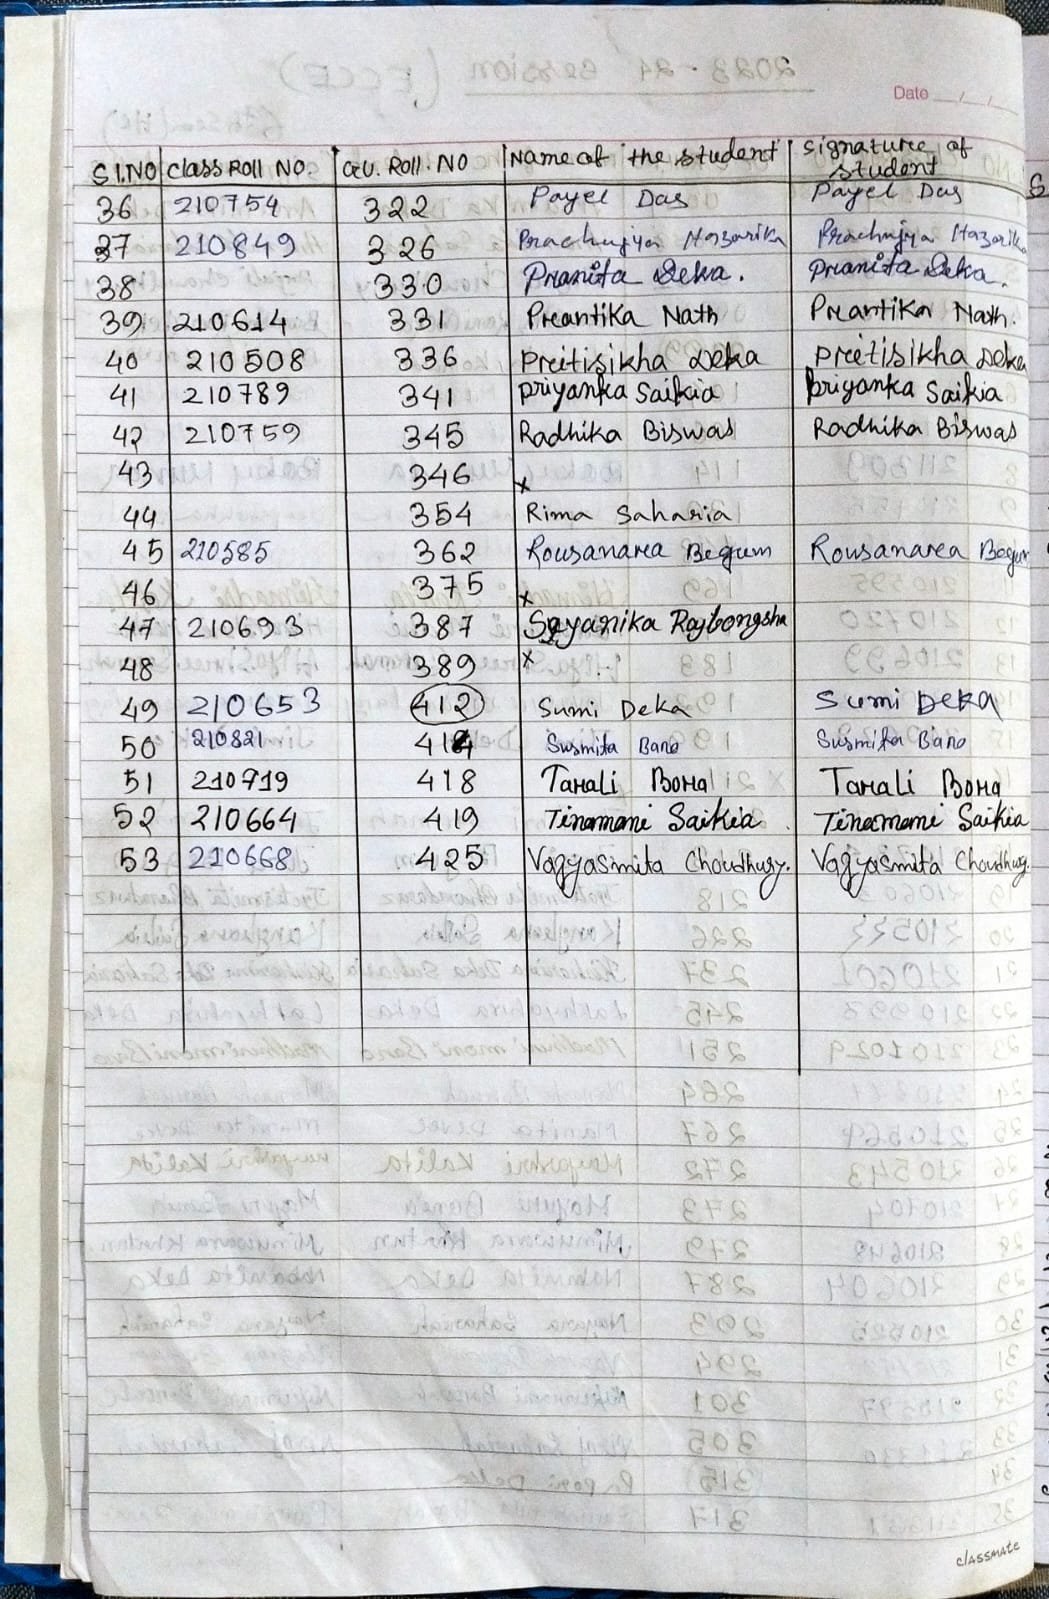 Date __/__/__
Sl.NO Class Roll NO. GU. Roll. NO Name of the student signature of student
36 210754 322 Payel Das Payel Das
37 210849 326 Prachujya Hazarika Prachujya Hazarika
38 330 Pranita Deka. Pranita Deka.
39 210614 331 Preantika Nath Preantika Nath.
40 210508 336 Preitisikha Deka Preitisikha Deka
41 210789 341 priyanka Saikia priyanka Saikia
42 210759 345 Radhika Biswas Radhika Biswas
43 346 x
44 354 Rima Saharia
45 210585 362 Rousanarea Begum Rousanarea Begum
46 375 x
47 210693 387 Sayanika Rajbongshi
48 389 x
49 210653 412 Sumi Deka Sumi Deka
50 210821 414 Susmita Bano Susmita Bano
51 210719 418 Tarali Bora Tarali Bora
52 210664 419 Tinamani Saikia Tinamani Saikia
53 210668 425 Vagyasmita Choudhury. Vagyasmita Choudhury.
classmate